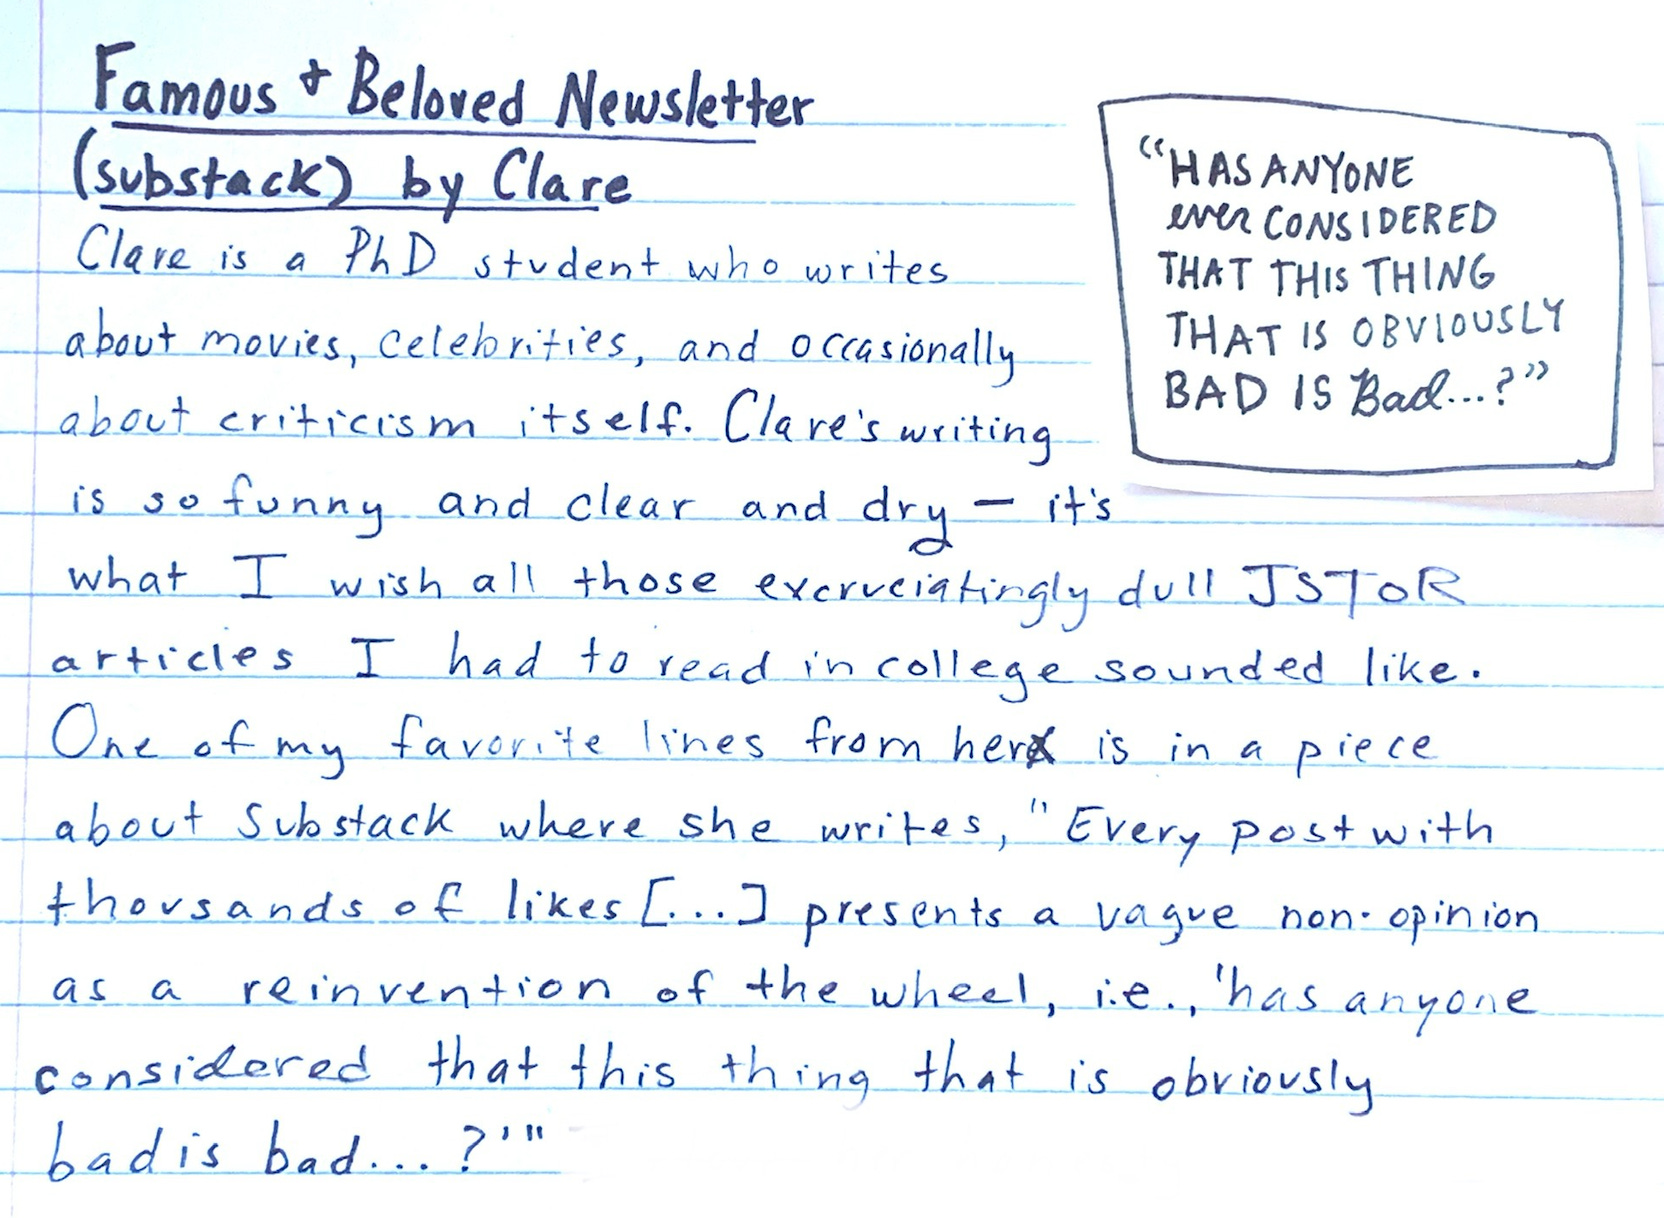 Famous + Beloved Newsletter
(substack) by Clare
Clare is a PhD student who writes
about movies, celebrities, and occasionally
about criticism itself. Clare's writing
is so funny and clear and dry — it's
what I wish all those excruciatingly dull JSTOR
articles I had to read in college sounded like.
One of my favorite lines from her is in a piece
about Substack where she writes, "Every post with
thousands of likes [...] presents a vague non-opinion
as a reinvention of the wheel, i.e., 'has anyone
considered that this thing that is obviously
bad is bad...?'"
"HAS ANYONE
ever CONSIDERED
THAT THIS THING
THAT IS OBVIOUSLY
BAD IS Bad...?"